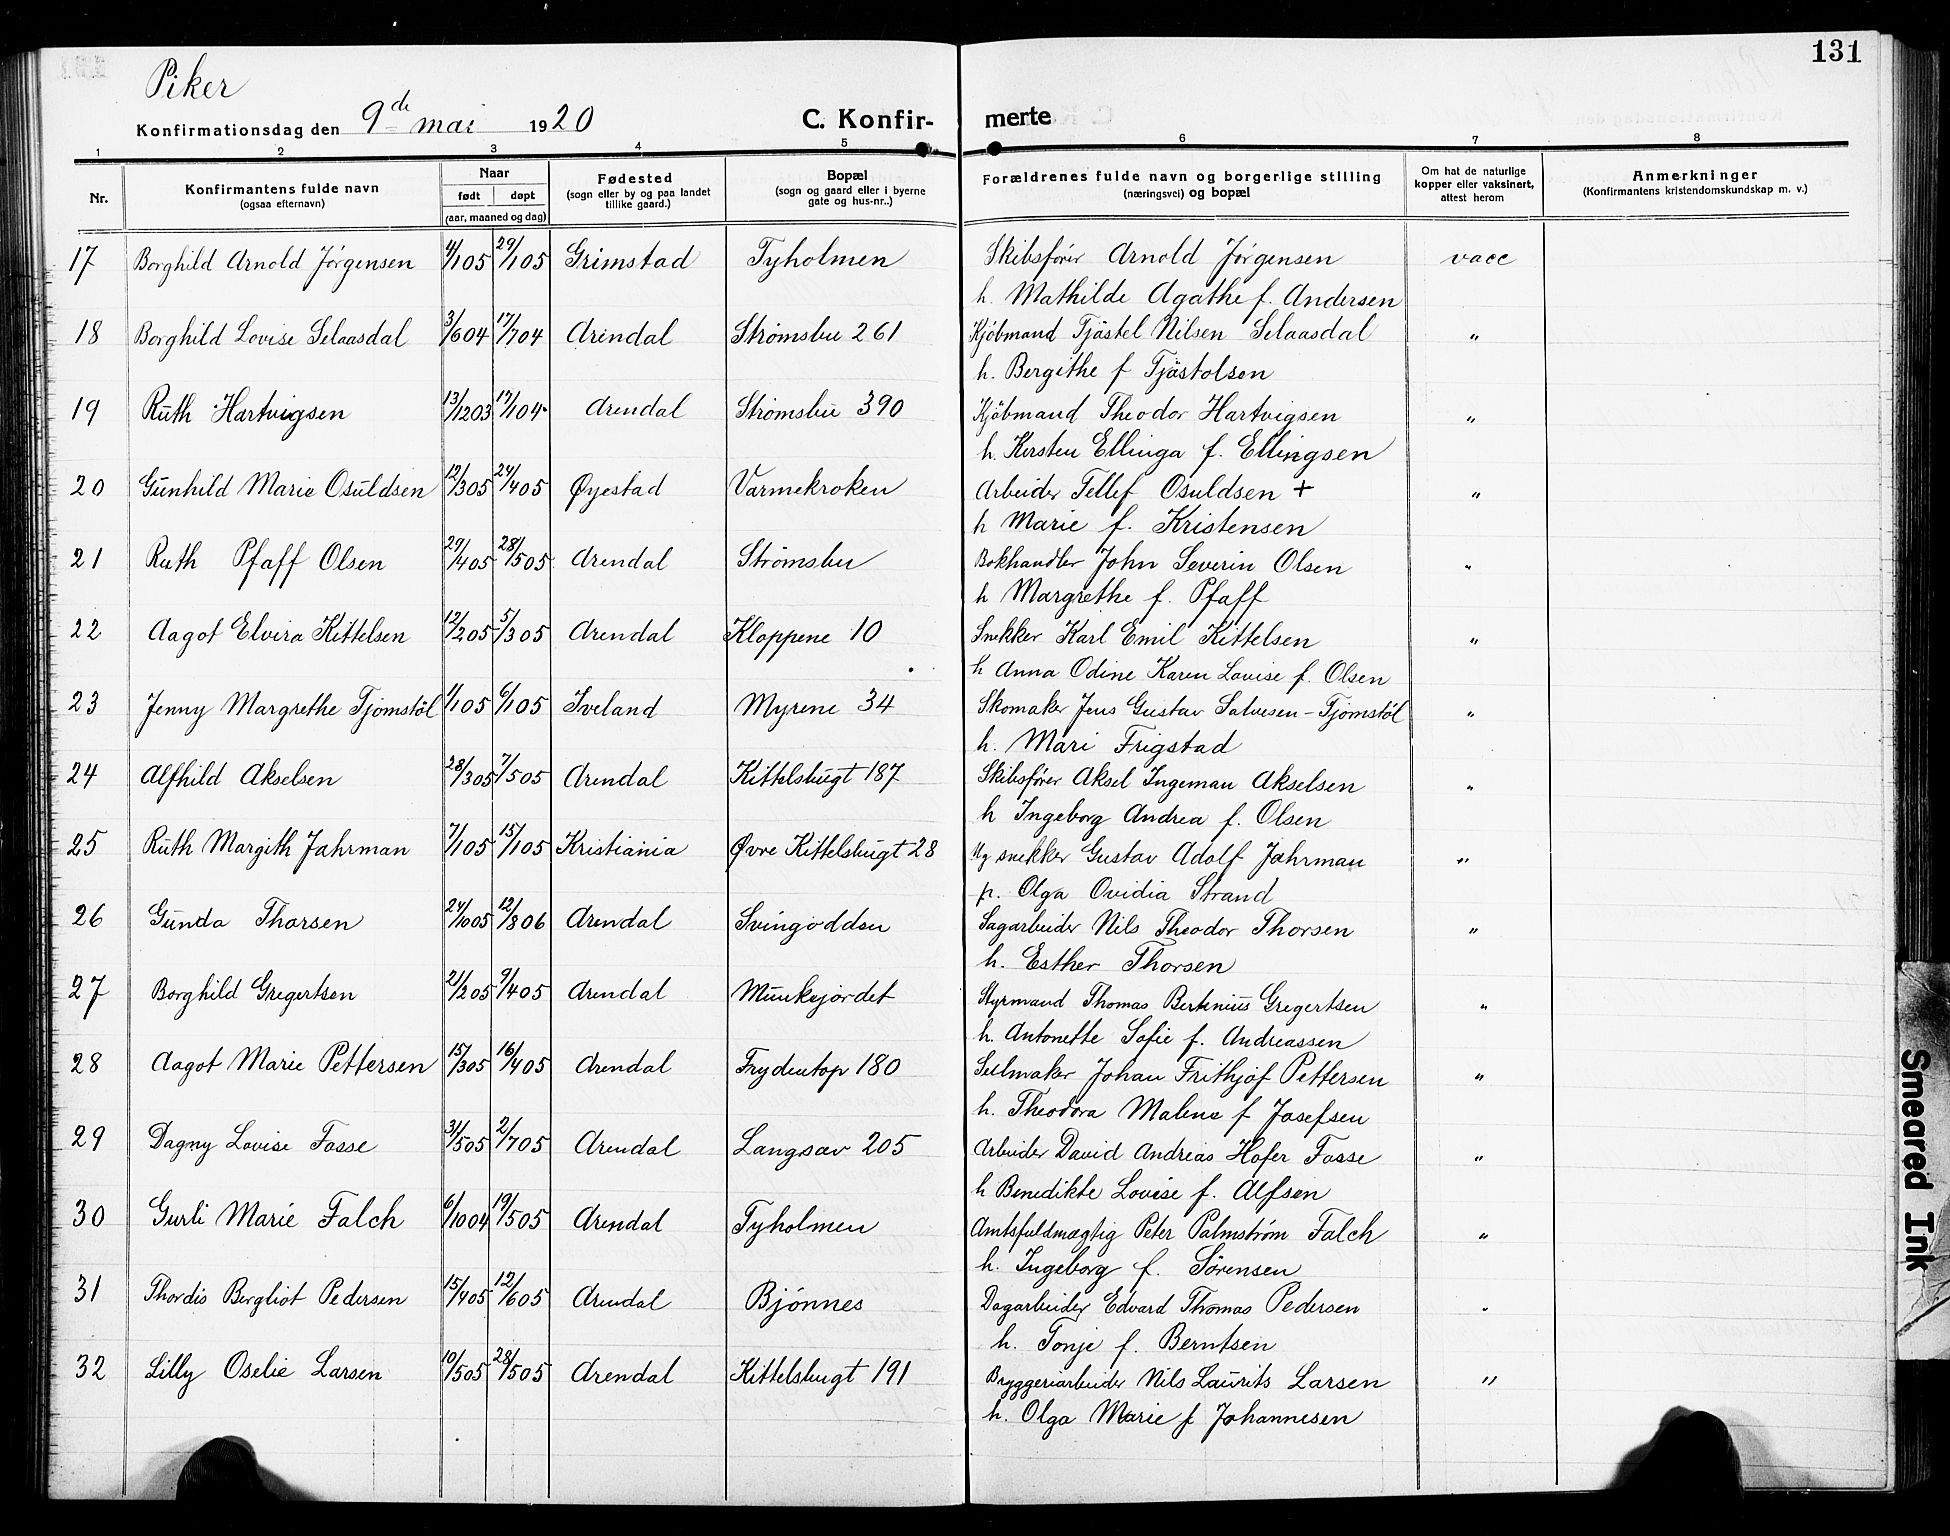 131
Piker
Konfirmationsdag den 9de mai 1920 C. Konfir- merte
1 2 3 4 5 6 7 8
Nr. Konfirmantens fulde navn (ogsaa efternavn) Naar født døpt (aar, maaned og dag) Fødested (sogn eller by og paa landet tillike gaard.) Bopæl (sogn og gaard eller i byerne gate og hus-nr..) Forældrenes fulde navn og borgerlige stilling (næringsvei) og bopæl Om hat de naturlige kopper eller vaksinert, attest herom Anmerkninger (Konfirmantens kristendomskundskap m. v.)
17 Borghild Arnold Jørgensen 4/1 05 29/1 05 Grimstad Tyholmen Skibsfører Arnold Jørgensen vacc
h. Mathilde Agathe f. Andersen
18 Borghild Lovise Selaasdal 3/6 04 17/7 04 Arendal Strømsbu 261 Kjøbmand Tjästel Nilsen Selaasdal "
h. Bergithe f Tjästolsen
19 Ruth Hartvigsen 13/12 03 17/1 04 Arendal Strømsbu 390 Kjøbmand Theodor Hartvigsen "
h. Kersten Ellinga f. Ellingsen
20 Gunhild Marie Osuldsen 12/3 05 24/4 05 Øyestad Varmekroken Arbeider Tellef Osuldsen +  "
h Marie f. Kristensen
21 Ruth Pfaff Olsen 29/4 05 28/5 05 Arendal Strømsbu Bokhandler John Severin Olsen "
h Margrethe f. Pfaff
22 Aagot Elvira Kittelsen 12/2 05 5/3 05 Arendal Kloppene 10 Snekker Karl Emil Kittelsen "
h Anna Odine Karen Lovise f. Olsen
23 Jenny Margrethe Tjomstöl 1/1 05 6/1 05 Iveland Myrene 34 Skomaker Jens Gustav Salvesen-Tjomstöl "
h. Mari Frigstad
24 Alfhild Akselsen 28/3 05 7/5 05 Arendal Kittelsbugt 187 Skibsfører Aksel Ingeman Akselsen "
h Ingeborg Andrea f. Olsen
25 Ruth Margith Jahrman 7/1 05 15/1 05 Kristiania Øvre Kittelsbugt 28 Ug snekker Gustav Adolf Jahrman "
p. Olga Ovidia Strand
26 Gunda Thorsen 24/10 05 12/8 06 Arendal Svingodden Sagarbeider Nils Theodor Thorsen "
h. Esther Thorsen
27 Borghild Gregertsen 21/2 05 9/4 05 Arendal Munkejordet Styrmand Thomas Bertinius Gregertsen "
h. Antonette Sofie f. Andreassen
28 Aagot Marie Pettersen 15/3 05 16/4 05 Arendal Frydentop 180 Seilmaker Johan Frithjof Pettersen "
h. Theodora Malene f Josefsen
29 Dagny Lovise Fosse 31/5 05 2/7 05 Arendal Langsæv 205 Arbeider David Andreas Hofer Fosse "
h Benedikte Lovise f. Alfsen
30 Gurli Marie Falch 6/10 04 19/5 05 Arendal Tyholmen Amtsfuldmægtig Peter Palmstrøm Falch "
h. Ingeborg f. Sørensen
31 Thordis Bergliot Pedersen 15/4 05 12/6 05 Arendal Bjønnes Dagarbeider Edvard Thomas Pedersen "
h. Tonje f. Berntsen
32 Lilly Oselie Larsen 10/5 05 28/5 05 Arendal Kittelsbugt 191 Bryggeriarbeider Nils Laurits Larsen "
h. Olga Marie f Johannesen
Smeared Ink